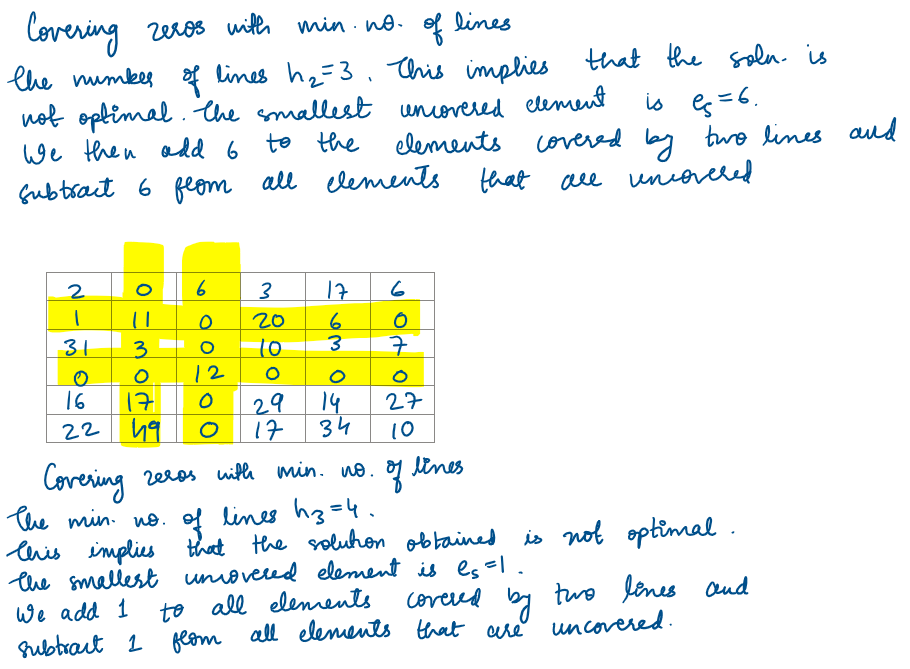 Covering zeros with min. no. of lines
The number of lines h₂=3. This implies that the soln. is
not optimal. The smallest uncovered element is eₛ=6.
We then add 6 to the elements covered by two lines and
subtract 6 from all elements that are uncovered
2 0 6 3 17 6
1 11 0 20 6 0
31 3 0 10 3 7
0 0 12 0 0 0
16 17 0 29 14 27
22 49 0 17 34 10
Covering zeros with min. no. of lines
The min. no. of lines h₃=4.
This implies that the solution obtained is not optimal.
The smallest uncovered element is eₛ=1.
We add 1 to all elements covered by two lines and
subtract 1 from all elements that are uncovered.